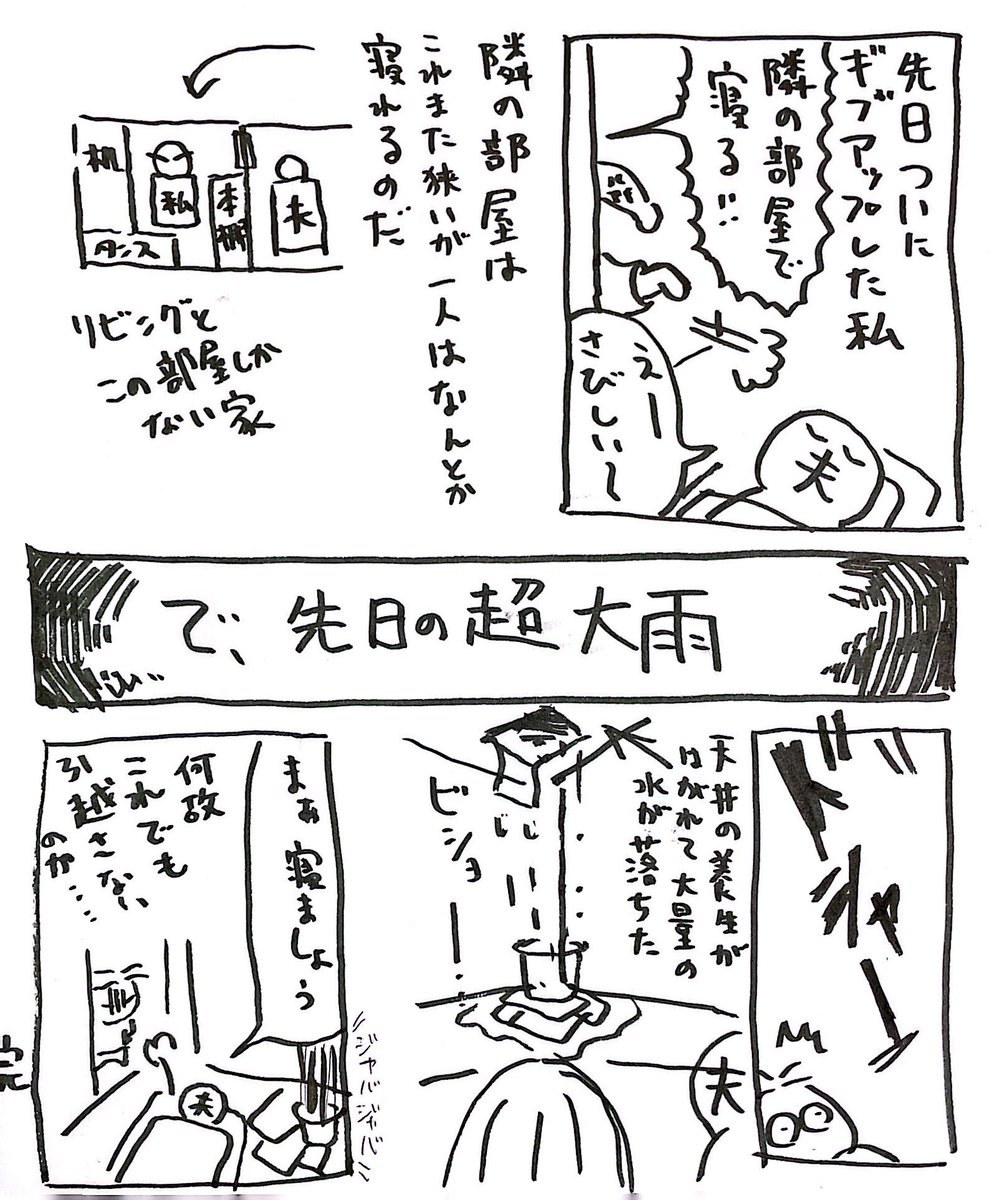 先日ついに
ギブアップした私
隣の部屋で
寝る!!
えー
さびしい〜
夫
隣の部屋は
これまた狭いが一人はなんとか
寝れるのだ
机
私
本棚
夫
タンス
リビングと
この部屋しか
ない家
で、先日の超大雨
ドジャー
天井の養生が
はがれて大量の
水が落ちた
ビショー
夫
まぁ寝ましょう
何故
これでも
引越さない
のか……
夫
ジャバジャバ
完